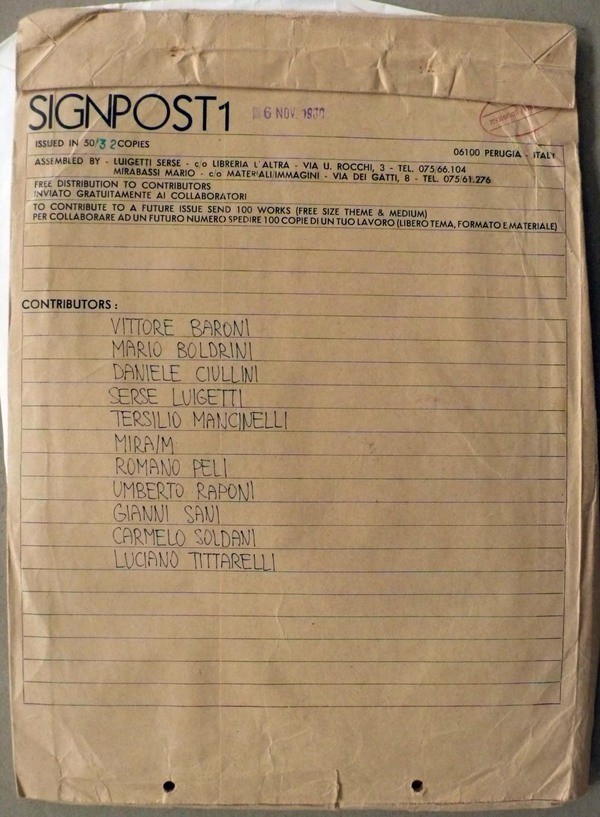 SIGNPOST1
6 NOV. 1980
ISSUED IN 50/32 COPIES
06100 PERUGIA - ITALY
ASSEMBLED BY - LUIGETTI SERSE - c/o LIBRERIA L'ALTRA - VIA U. ROCCHI, 3 - TEL. 075/66.104
MIRABASSI MARIO - c/o MATERIALI/IMMAGINI - VIA DEI GATTI, 8 - TEL. 075/61.276
FREE DISTRIBUTION TO CONTRIBUTORS
INVIATO GRATUITAMENTE AI COLLABORATORI
TO CONTRIBUTE TO A FUTURE ISSUE SEND 100 WORKS (FREE SIZE THEME & MEDIUM)
PER COLLABORARE AD UN FUTURO NUMERO SPEDIRE 100 COPIE DI UN TUO LAVORO (LIBERO TEMA, FORMATO E MATERIALE)
CONTRIBUTORS :
VITTORE BARONI
MARIO BOLDRINI
DANIELE CIULLINI
SERSE LUIGETTI
TERSILIO MANCINELLI
MIRA/M
ROMANO PELI
UMBERTO RAPONI
GIANNI SANI
CARMELO SOLDANI
LUCIANO TITTARELLI